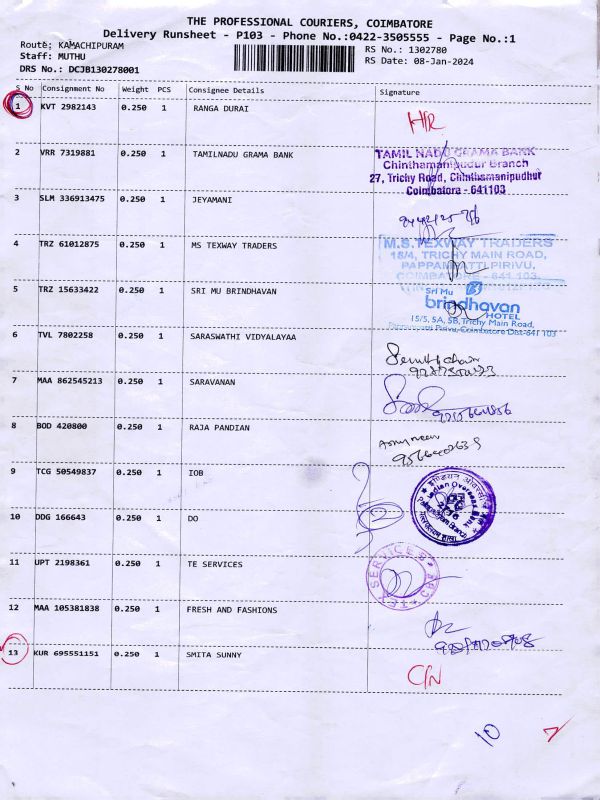 THE PROFESSIONAL COURIERS, COIMBATORE
Delivery Runsheet - P103 - Phone No.:0422-3505555 - Page No.:1
Route; KAMACHIPURAM
Staff: MUTHU
DRS No.: DCJB130278001
RS No.: 1302780
RS Date: 08-Jan-2024
S No Consignment No Weight PCS Consignee Details Signature
1 KVT 2982143 0.250 1 RANGA DURAI
2 VRR 7319881 0.250 1 TAMILNADU GRAMA BANK
TAMIL NADU GRAMA BANK
Chinthamanipudur Branch
27, Trichy Road, Chinthamanipudhur
Coimbatore - 641103
3 SLM 336913475 0.250 1 JEYAMANI
4 TRZ 61012875 0.250 1 MS TEXWAY TRADERS
M.S.TEXWAY TRADERS
18/4, TRICHY MAIN ROAD,
PAPPAMPATTI PIRIVU,
COIMBATORE - 641 103.
5 TRZ 15633422 0.250 1 SRI MU BRINDHAVAN
Sri Mu
brindhavan
HOTEL
15/5, 5A, 5B, Trichy Main Road,
Pappampatti Pirivu, Coimbatore Dist-641 103
6 TVL 7802258 0.250 1 SARASWATHI VIDYALAYAA
7 MAA 862545213 0.250 1 SARAVANAN
8 BOD 420800 0.250 1 RAJA PANDIAN
9 TCG 50549837 0.250 1 IOB
Indian Overseas Bank
10 DDG 166643 0.250 1 DO
11 UPT 2198361 0.250 1 TE SERVICES
12 MAA 105381838 0.250 1 FRESH AND FASHIONS
13 KUR 695551151 0.250 1 SMITA SUNNY
C/N
10